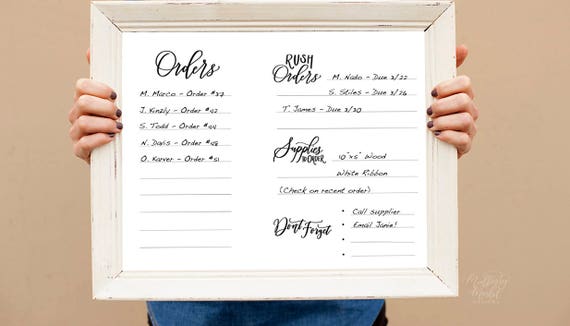 Orders
M. Marco - Order #37
J. Kinzly - Order #42
S. Todd - Order #44
N. Davis - Order #48
O. Karver - Order #51
RUSH
Orders
M. Nado - Due 2/22
S. Stiles - Due 2/26
T. James - Due 2/30
Supplies
to ORDER
10"x5" Wood
White Ribbon
(Check on recent order)
Don't Forget
• Call supplier
• Email Janie!
•
•